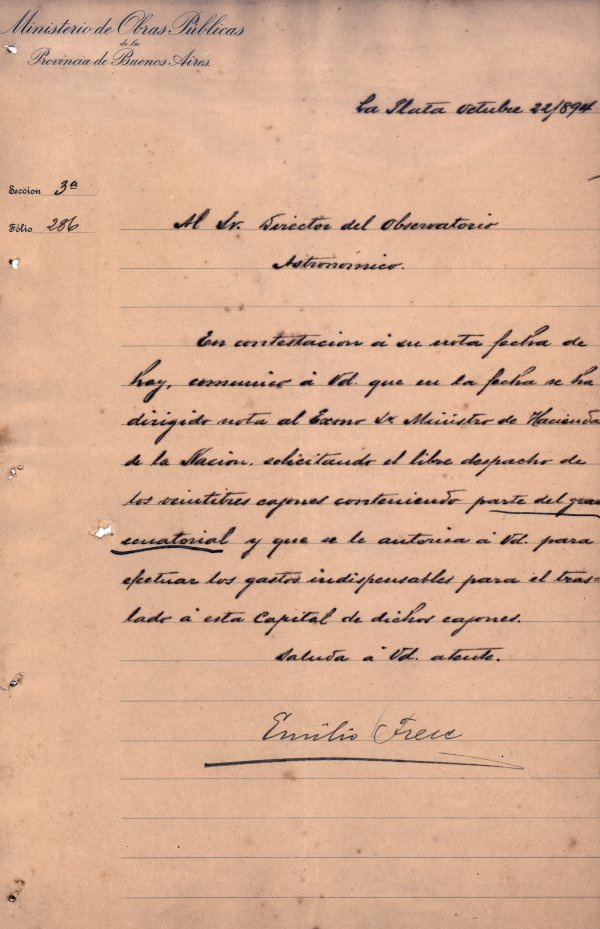 Ministerio de Obras Públicas
de la
Provincia de Buenos Aires
La Plata Octubre 22/894
Seccion 3ª
Fólio 286
Al Sr. Director del Observatorio
Astronómico.
En contestacion á su nota fecha de
hoy, comunico á Vd. que en la fecha se ha
dirigido nota al Exmo Sr Ministro de Hacienda
de la Nacion, solicitando el libre despacho de
los veintitres cajones conteniendo parte del gran
ecuatorial y que se le autoriza á Vd. para
efectuar los gastos indispensables para el tras=
lado á esta Capital de dichos cajones.
Saluda á Vd. atente.
Emilio Frere